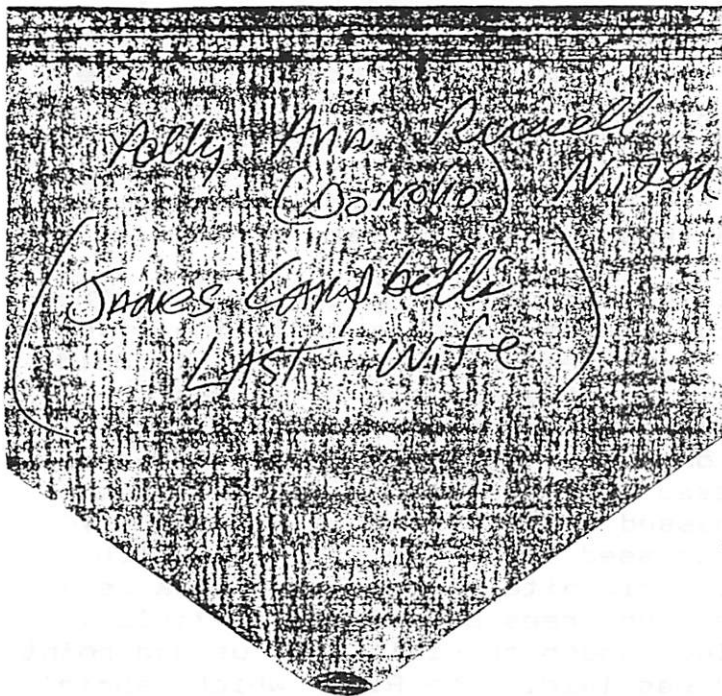 Polly Ann Russell
(Donoho) Nixon
(James Campbells
Last Wife)